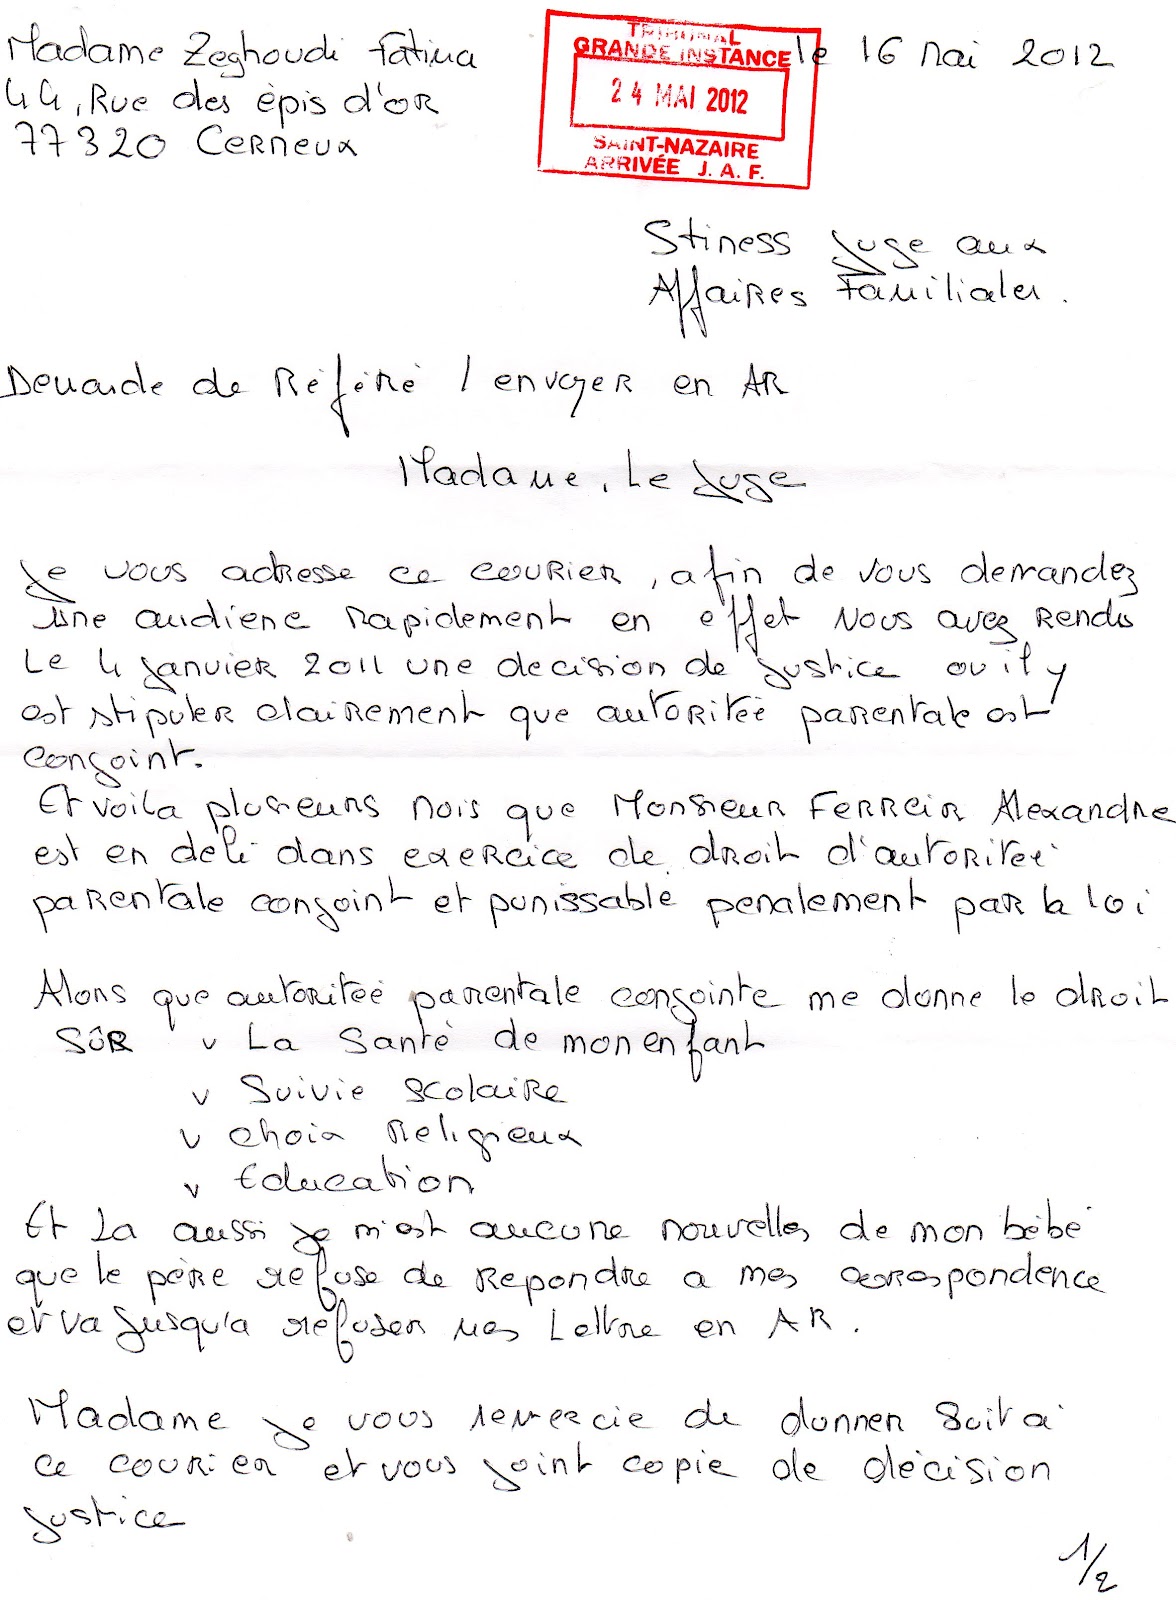 Madame Zeghoudi Fatima
44, Rue des épis d'or
77320 Cerneux
le 16 Mai 2012
TRIBUNAL
GRANDE INSTANCE
24 MAI 2012
SAINT-NAZAIRE
ARRIVÉE J. A. F.
Stiness Juge aux
Affaires Familiales.
Demande de Référé / envoyer en AR
Madame, Le Juge
Je vous adresse ce courier, afin de vous demandez
une audiene rapidement en effet Nous avez rendu
Le 4 Janvier 2011 une decision de justice ou il y
est stipuler clairement que autoritée parentale est
conjoint.
Et voila plusieurs mois que Monsieur Ferreir Alexandre
est en deli dans exercice de droit d'autoritée
parentale conjoint et punissable penalement par la loi
Alors que autoritée parentale conjointe me donne le droit
sûr v La Santé de mon enfant
v Suivie scolaire
v choix religieux
v Education
Et La aussi je n'est aucune nouvelles de mon bébé
que le père refuse de repondre a mes corespondence
et va jusqu'a refuser mes Lettre en AR.
Madame je vous remercie de donner suit a
ce courier et vous joint copie de décision
justice
1/2